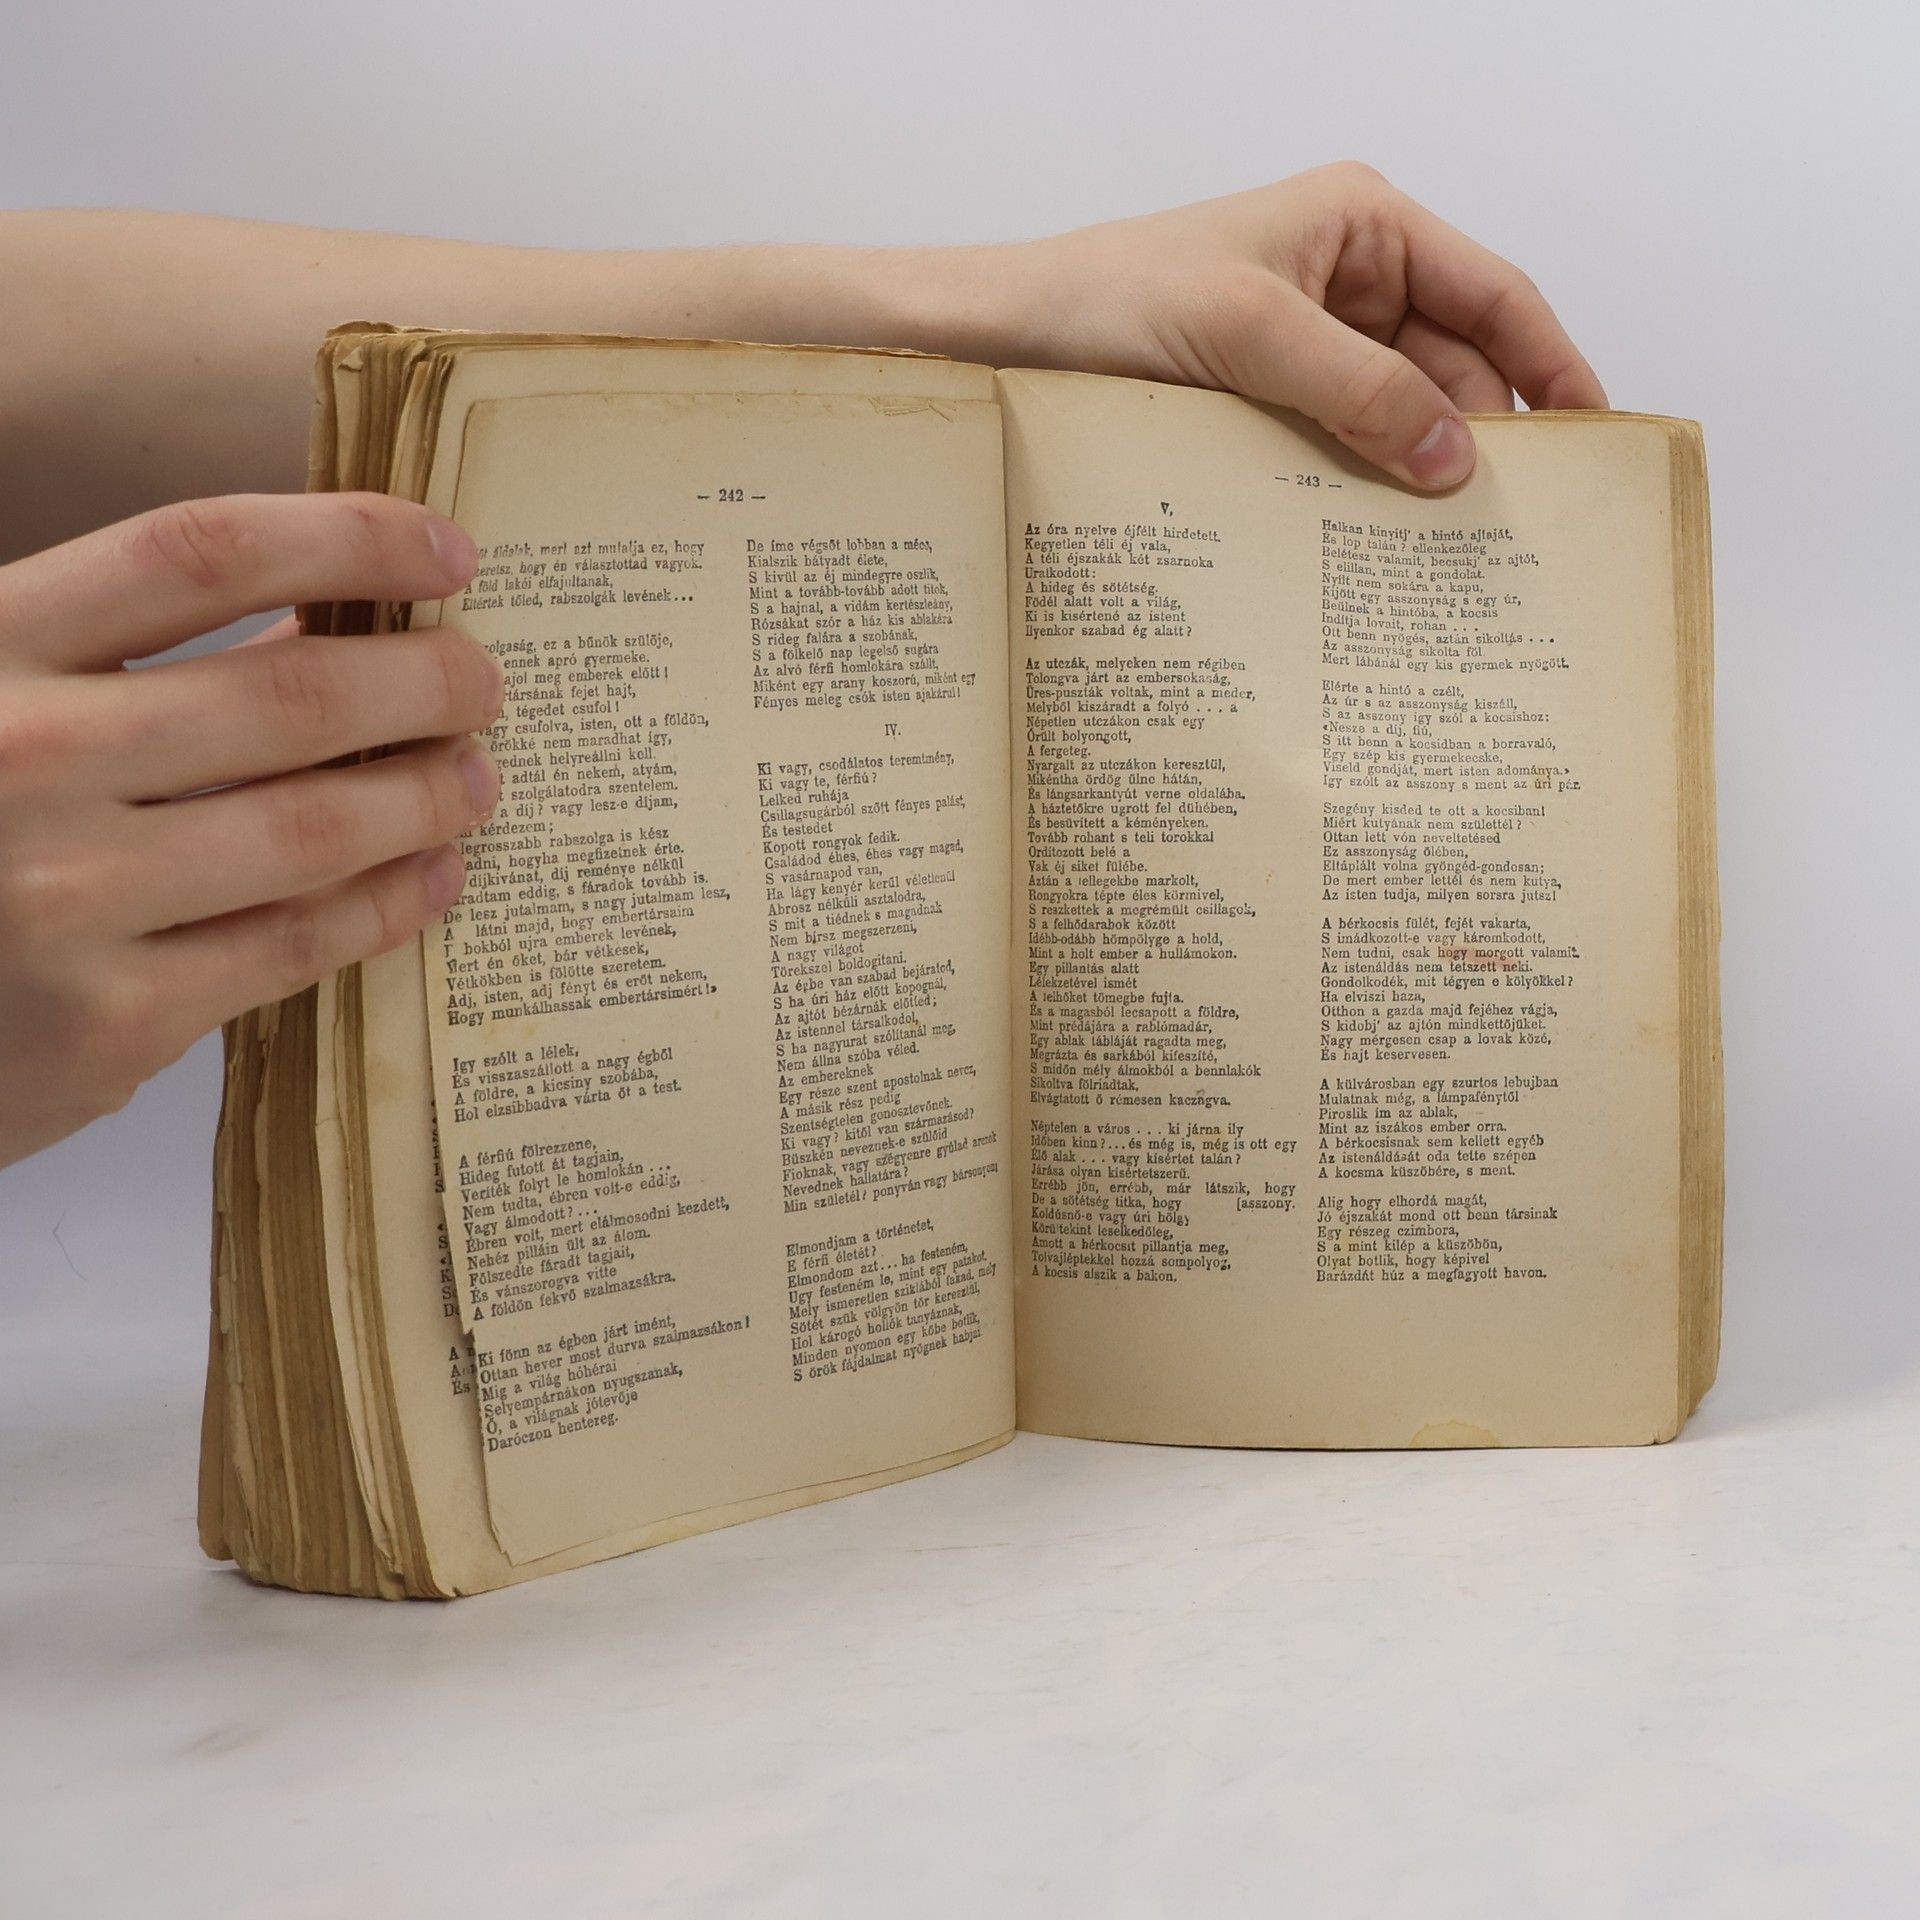 — 242 —
áldalak, mert azt mutatja ez, hogy
szeretsz, hogy én választottad vagyok.
A föld lakói elfajultanak,
Eltértek tőled, rabszolgák levének...
zolgaság, ez a bűnök szülője,
ennek apró gyermeke.
ajol meg emberek előtt!
rtársának fejet hajt,
, tégedet csufol!
vagy csufolva, isten, ott a földön,
örökké nem maradhat így,
gednek helyreállni kell.
t adtál én nekem, atyám,
t szolgálatodra szentelem.
a díj? vagy lesz-e díjam,
kérdezem;
legrosszabb rabszolga is kész
adni, hogyha megfizetnek érte.
díjkivánat, díj reménye nélkül
áradtam eddig, s fáradok tovább is.
De lesz jutalmam, s nagy jutalmam lesz,
A látni majd, hogy embertársaim
bokból ujra emberek levének,
Mert én őket, bár vétkesek,
Vétkökben is fölötte szeretem.
Adj, isten, adj fényt és erőt nekem,
Hogy munkálhassak embertársimért!»
Igy szólt a lélek,
És visszaszállott a nagy égből
A földre, a kicsiny szobába,
Hol elzsibbadva várta őt a test.
A férfiú fölrezzene,
Hideg futott át tagjain,
Veríték folyt le homlokán ...
Nem tudta, ébren volt-e eddig,
Vagy álmodott?...
Ébren volt, mert elálmosodni kezdett,
Nehéz pilláin ült az álom.
Fölszedte fáradt tagjait,
És vánszorogva vitte
A földön fekvő szalmazsákra.
Ki fönn az égben járt imént,
Ottan hever most durva szalmazsákon!
Mig a világ hóhérai
Selyempárnákon nyugszanak,
Ő, a világnak jótevője
Daróczon hentereg.
De íme végsőt lobban a mécs,
Kialszik bátyadt élete,
S kivül az éj mindegyre oszlik,
Mint a tovább-tovább adott titok,
S a hajnal, a vidám kertészleány,
Rózsákat szór a ház kis ablakára
S rideg falára a szobának,
S a fölkelő nap legelső sugára
Az alvó férfi homlokára szállt,
Miként egy arany koszorú, miként egy
Fényes meleg csók isten ajakárul!
IV.
Ki vagy, csodálatos teremtmény,
Ki vagy te, férfiú?
Lelked ruhája
Csillagsugárból szőtt fényes palást,
És testedet
Kopott rongyok fedik.
Családod éhes, éhes vagy magad,
S vasárnapod van,
Ha lágy kenyér kerül véletlenül
Abrosz nélküli asztalodra,
S mit a tiédnek s magadnak
Nem bírsz megszerzeni,
A nagy világot
Törekszel boldogítani.
Az égbe van szabad bejáratod,
S ha úri ház előtt kopognál,
Az ajtót bézárnák előtted;
Az istennel társalkodol,
S ha nagyurat szólítanál meg,
Nem állna szóba véled.
Az embereknek
Egy része szent apostolnak nevez,
A másik rész pedig
Szentségtelen gonosztevőnek.
Ki vagy? kitől van származásod?
Büszkén neveznek-e szülőid
Fioknak, vagy szégyenre gyúlad arczok
Nevednek hallatára?
Min születél? ponyván vagy bársonyon?
Elmondjam a történetet,
E férfi életét?
Elmondom azt... ha festeném,
Ugy festeném le, mint egy patakot,
Mely ismeretlen sziklából fakad, mely
Sötét szűk völgyön tör keresztül,
Hol károgó hollók tanyáznak,
Minden nyomon egy kőbe botlik,
S örök fájdalmat nyögnek habjai
— 243 —
V.
Az óra nyelve éjfélt hirdetett.
Kegyetlen téli éj vala,
A téli éjszakák két zsarnoka
Uralkodott:
A hideg és sötétség.
Födél alatt volt a világ,
Ki is kisértené az istent
Ilyenkor szabad ég alatt?
Az utczák, melyeken nem régiben
Tolongva járt az embersokaság,
Üres-puszták voltak, mint a meder,
Melyből kiszáradt a folyó . . . a
Népetlen utczákon csak egy
Őrült bolyongott,
A fergeteg.
Nyargalt az utczákon keresztül,
Mikéntha ördög ülne hátán,
És lángsarkantyút verne oldalába.
A háztetőkre ugrott fel dühében,
És besüvített a kéményeken.
Tovább rohant s teli torokkal
Ordítozott belé a
Vak éj siket fülébe.
Aztán a fellegekbe markolt,
Rongyokra tépte éles körmivel,
S reszkettek a megrémült csillagok,
S a felhődarabok között
Idébb-odább hömpölyge a hold,
Mint a holt ember a hullámokon.
Egy pillantás alatt
Lélekzetével ismét
A felhőket tömegbe fujta.
És a magasból lecsapott a földre,
Mint prédájára a rablómadár,
Egy ablak tábláját ragadta meg,
Megrázta és sarkából kifeszíté,
S midőn mély álmokból a bennlakók
Sikoltva fölriadtak,
Elvágtatott ő rémesen kaczagva.
Néptelen a város . . . ki járna ily
Időben kinn?...és még is, még is ott egy
Élő alak . . . vagy kisértet talán?
Járása olyan kisértetszerü.
Errébb jön, errébb, már látszik, hogy
De a sötétség titka, hogy [asszony.
Koldúsnő-e vagy úri hölgy
Körültekint leselkedőleg,
Amott a bérkocsit pillantja meg,
Tolvajléptekkel hozzá sompolyog,
A kocsis alszik a bakon.
Halkan kinyitj' a hintó ajtaját,
És lop talán? ellenkezőleg
Belétesz valamit, becsukj' az ajtót,
S elillan, mint a gondolat.
Nyílt nem sokára a kapu,
Kijött egy asszonyság s egy úr,
Beülnek a hintóba, a kocsis
Indítja lovait, rohan . . .
Ott benn nyögés, aztán sikoltás . . .
Az asszonyság sikolta föl
Mert lábánál egy kis gyermek nyögött.
Elérte a hintó a czélt,
Az úr s az asszonyság kiszáll,
S az asszony így szól a kocsishoz:
«Nesze a díj, fiú,
S itt benn a kocsidban a borravaló,
Egy szép kis gyermekecske,
Viseld gondját, mert isten adománya.»
Igy szólt az asszony s ment az úri pár.
Szegény kisded te ott a kocsiban!
Miért kutyának nem születtél?
Ottan lett vón neveltetésed
Ez asszonyság ölében,
Eltáplált volna gyöngéd-gondosan;
De mert ember lettél és nem kutya,
Az isten tudja, milyen sorsra jutsz!
A bérkocsis fülét, fejét vakarta,
S imádkozott-e vagy káromkodott,
Nem tudni, csak hogy morgott valamit.
Az istenáldás nem tetszett neki.
Gondolkodék, mit tégyen e kölyökkel?
Ha elviszi haza,
Otthon a gazda majd fejéhez vágja,
S kidobj' az ajtón mindkettőjüket.
Nagy mérgesen csap a lovak közé,
És hajt keservesen.
A külvárosban egy szurtos lebujban
Mulatnak még, a lámpafénytől
Piroslik ím az ablak,
Mint az iszákos ember orra.
A bérkocsisnak sem kellett egyéb
Az istenáldását oda tette szépen
A kocsma küszöbére, s ment.
Alig hogy elhordá magát,
Jó éjszakát mond ott benn társinak
Egy részeg czimbora,
S a mint kilép a küszöbön,
Olyat botlik, hogy képivel
Barázdát húz a megfagyott havon.